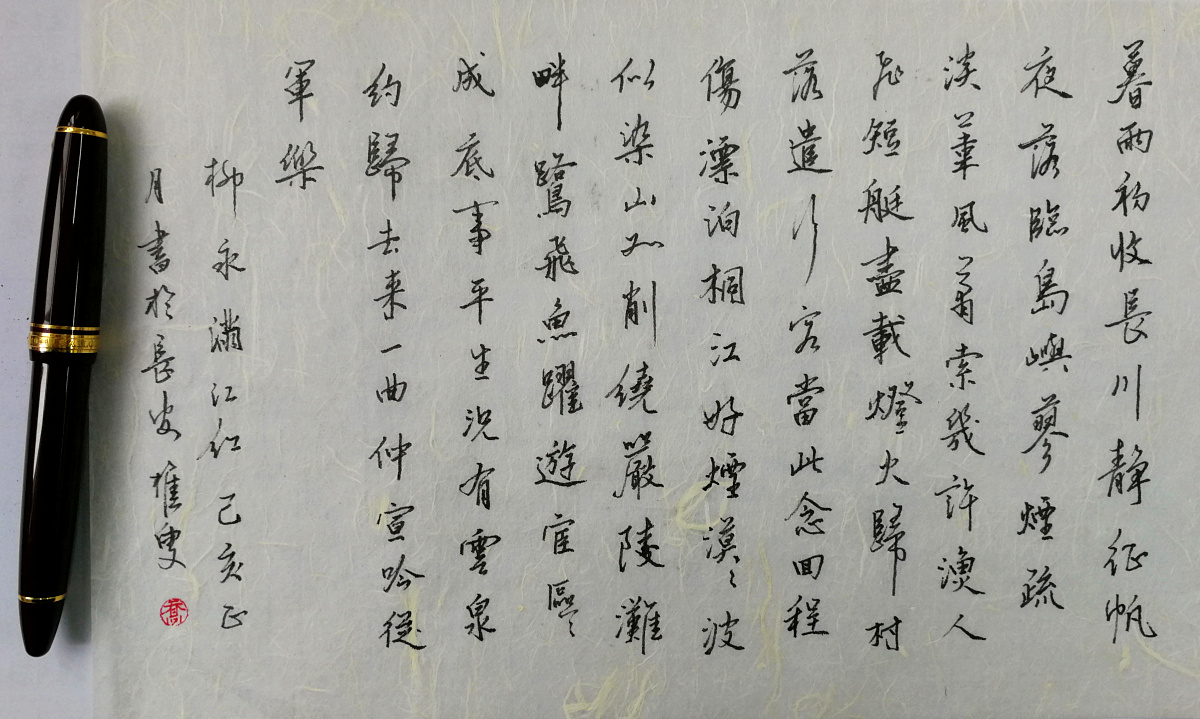 暮雨初收長川靜征帆
夜落臨島嶼蓼煙疏
淡葦風蕭索幾許漁人
飛短艇盡載燈火歸村
落遣行客當此念回程
傷漂泊桐江好煙漠〻波
似染山如削繞嚴陵灘
畔鷺飛魚躍遊宦區〻
成底事平生況有雲泉
約歸去来一曲仲宣吟從
軍樂
柳永滿江紅己亥正
月書於長安樵叟
喬